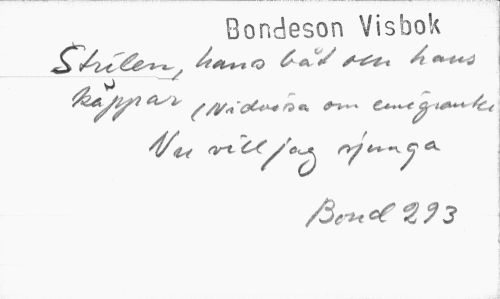 Bondeson Visbok
Strilen, hans båt och hans
käppar (Nidvisa om emigrante
Nu vill jag sjunga
Bond 293